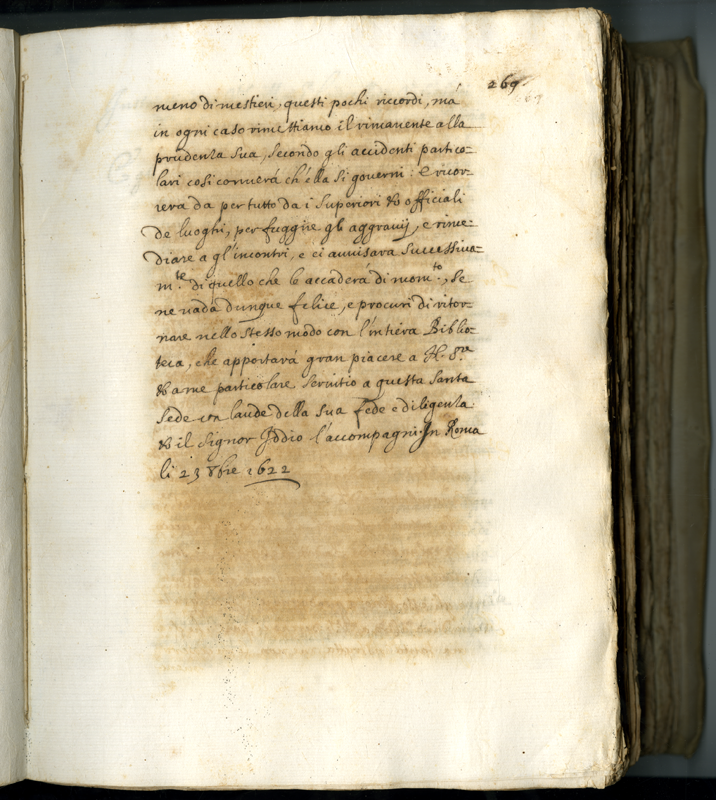 269
69
meno di mestieri, questi pochi riccordi, má
in ogni caso rimettiamo il rimanente alla
prudenza sua, secondo gli accidenti partico=
lari cosi converá ch'ella si governi: e ricor=
rera da per tutto da i superiori & officiali
de luoghi, per fuggire gli aggravij, e rime=
diare a gl'incontri, e ci avvisara successiva=
m.te di quello che le accaderá di mom.to, se
ne vada dunque felice, e procuri di ritor=
nare nello stesso modo con l'intiera Biblio=
teca, che apportará gran piacere a N. S.re
& a me particolare servitio a questa santa
sede con laude della sua fede e diligenza
& il signor Iddio l'accompagni. In Roma
li 23 8bre 1622